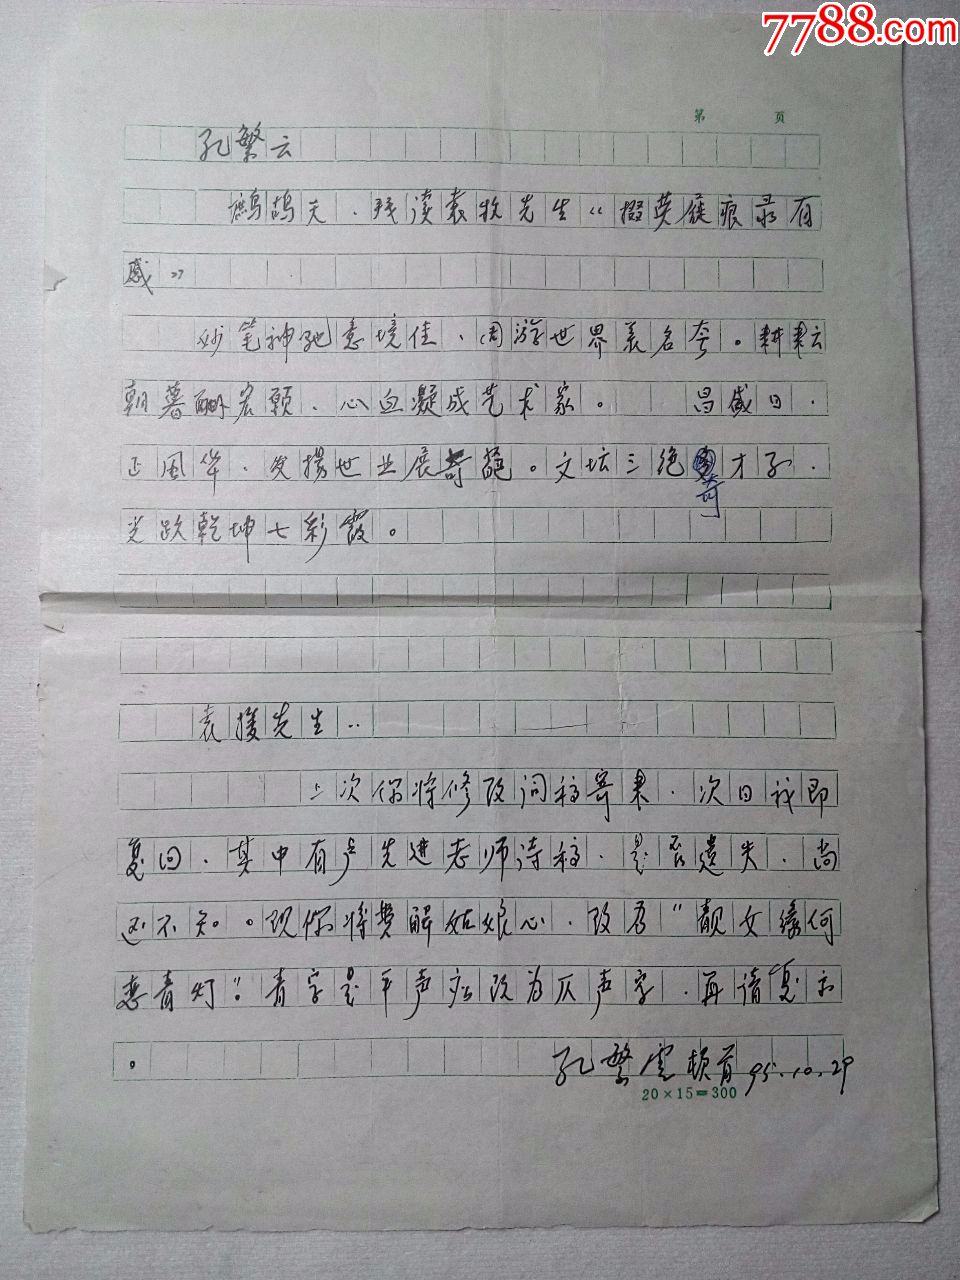 7788.com
第 页
孔繁云
鹧鸪天、拜读袁牧先生《掇英屐痕录有
感》
妙笔神驰意境佳、周游世界美名夸。耕耘云
朝暮酬宏愿、心血凝成艺术家。 昌盛日、
正风华、发扬世业展奇葩。文坛三绝奇才子、
光跃乾坤七彩霞。
袁援先生：
上次你将修改词稿寄来、次日我即
复回、其中有卢先进老师诗稿、是否遗失、尚
还不知。现你将梦解姑娘心、改为"靓女缘何
恋青灯"。青字是平声应改为仄声字、再请复示
。
孔繁云顿首95.10.29
20×15=300